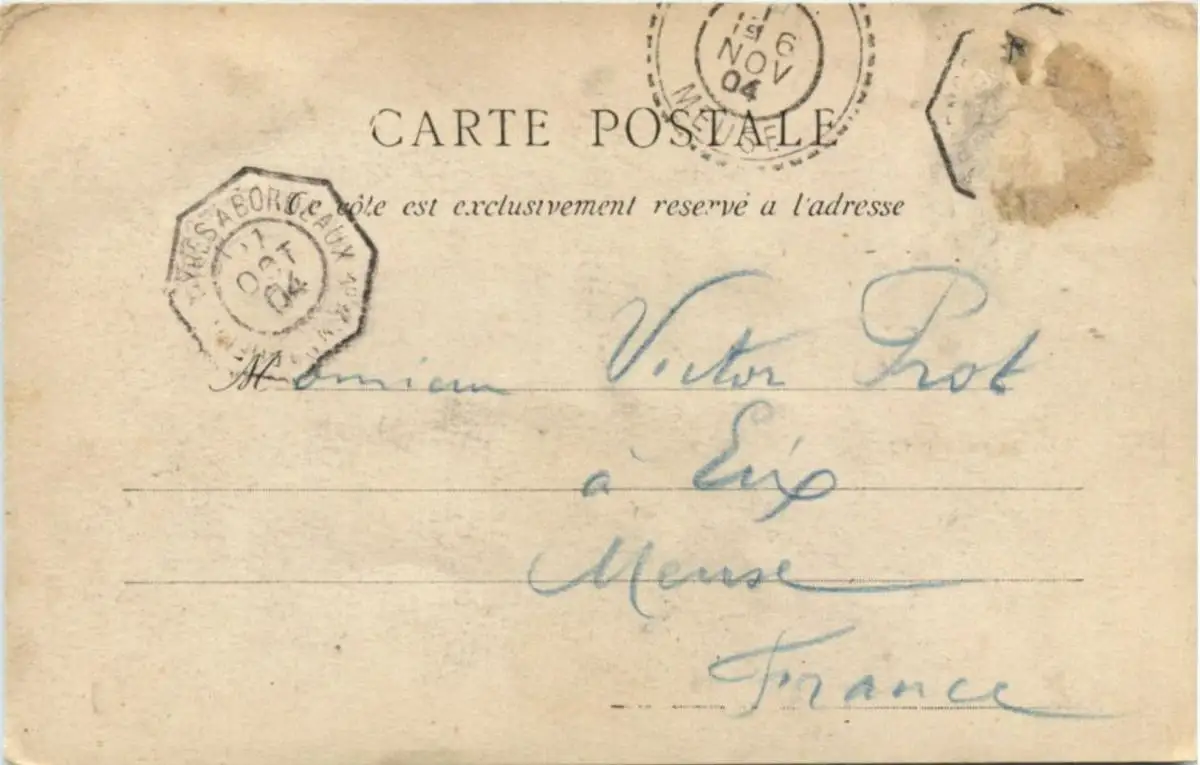 6
NOV
04
MEUSE
CARTE POSTALE
Ce côte est exclusivement reservé a l'adresse
AYRES A BORDEAUX
OCT
04
Monsieur Victor Prot
à Eix
Meuse
France